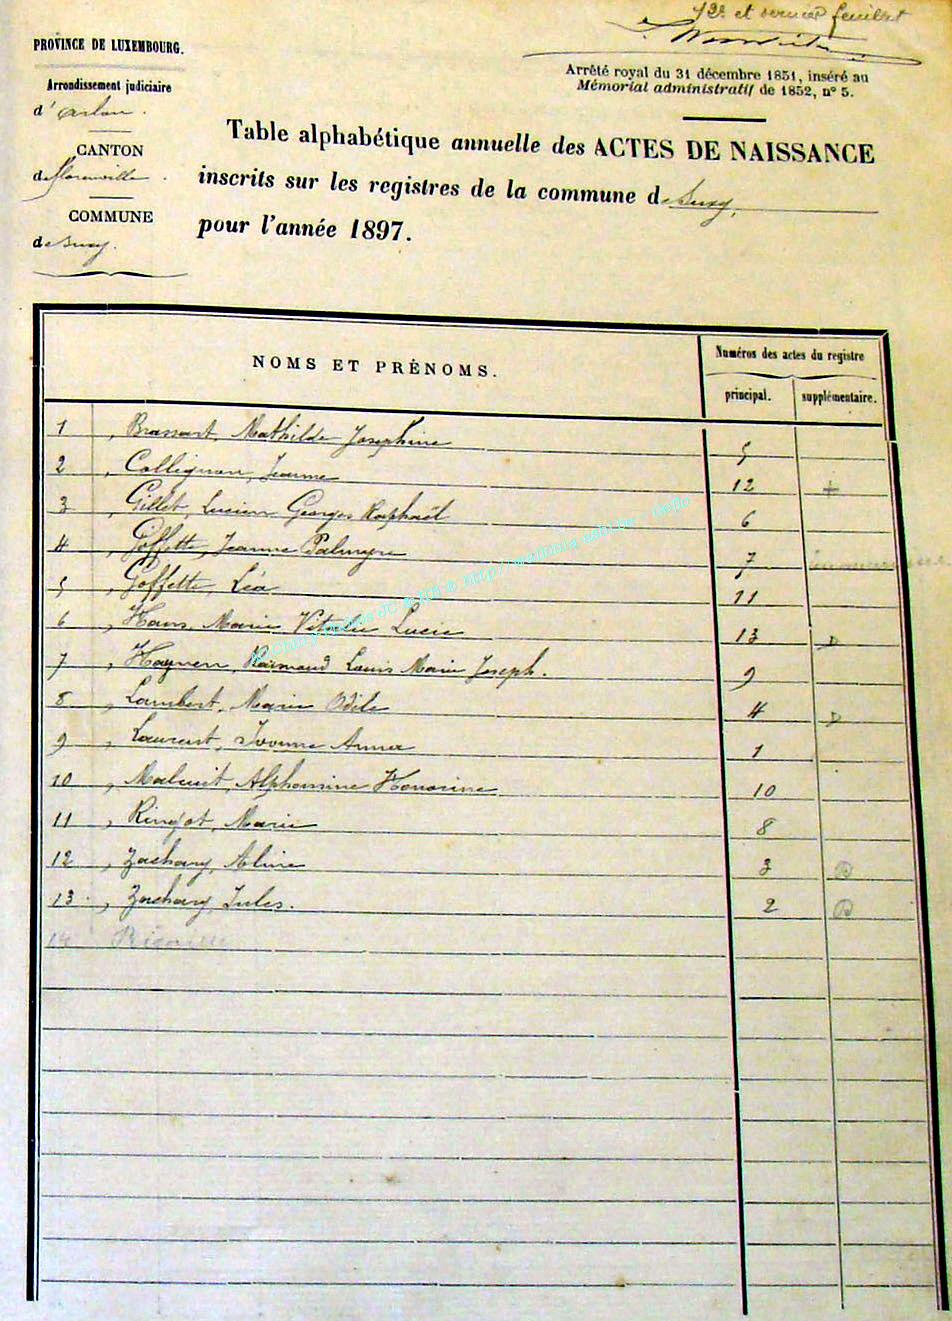 12e et dernier feuillet
PROVINCE DE LUXEMBOURG.
Arrêté royal du 31 décembre 1851, inséré au
Mémorial administratif de 1852, n° 5.
Arrondissement judiciaire
d'Arlon.
CANTON
de Florenville.
COMMUNE
de Suxy.
Table alphabétique annuelle des ACTES DE NAISSANCE
inscrits sur les registres de la commune de Suxy,
pour l'année 1897.
NOMS ET PRÉNOMS.
Numéros des actes du registre
principal. supplémentaire.
1 , Brassart, Mathilde Joséphine 5
2 , Collignon, Jeanne 12 +
3 , Gillet, Lucien Georges Raphaël 6
4 , Goffette, Jeanne Palmyre 7
5 , Goffette, Léa 11
6 , Hans, Marie Vitalie Lucie 13 D
7 , Haynen, Raimond Louis Marie Joseph. 9
8 , Lambert, Marie Odile 4 D
9 , Laurent, Ivonne Anna 1
10 , Maluit, Alphonsine Honorine 10
11 , Ringot, Marie 8
12 , Zachary, Aline 3 D
13. , Zachary, Jules. 2 D
14